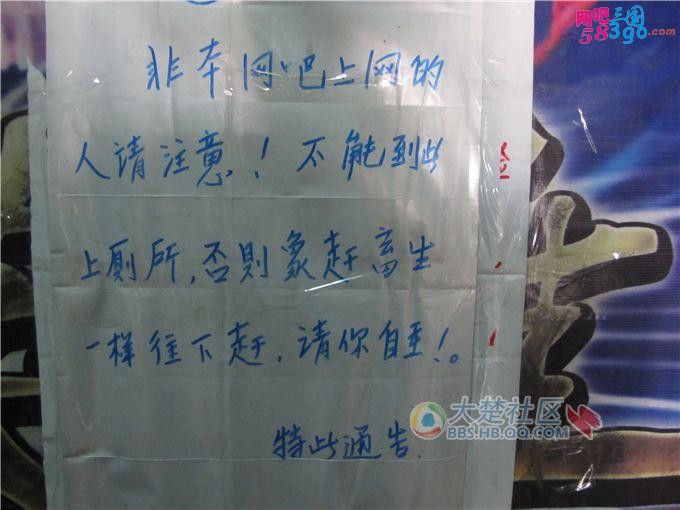 网吧三国
5839go.com
非本网吧上网的
人请注意！不能到此
上厕所，否则象赶畜生
一样往下赶，请你自重！。
特此通告.
大楚社区
BBS.HB.QQ.COM